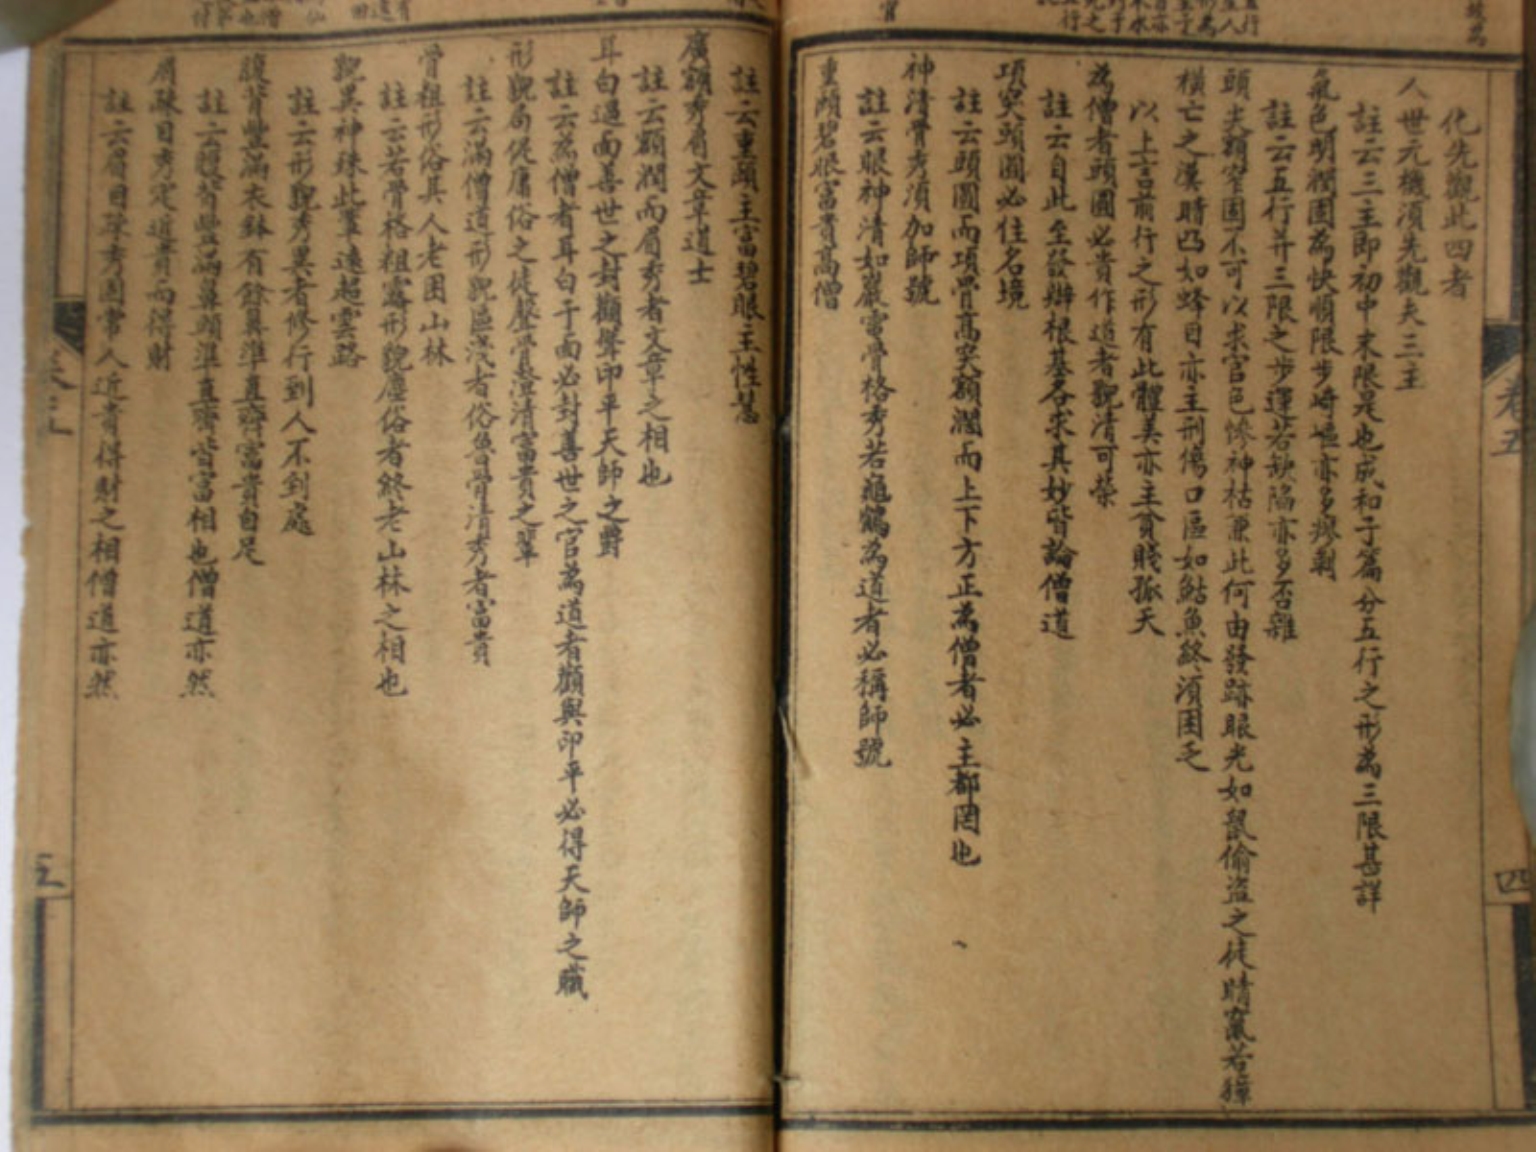 化先觀此四者
人世元機須先觀夫三主
註云三主即初中末限是也成和子篇分五行之形為三限甚詳
氣色明潤固為快順限步崎嶇亦多癆剩
註云五行并三限之步運若缺陷亦多否雜
頭尖額窄固不可以求官色慘神枯兼此何由發跡眼光如鼠偷盜之徒睛竄若獐
橫亡之漢睛凸如蜂目亦主刑傷口區如鮎魚終須困乏
以上言前行之形有此體美亦主貧賤孤夭
為僧者頭圓必貴作道者貌清可榮
註云自此至發辦根基名求其妙皆論僧道
項突頭圓必住名境
註云頭圓而項骨高突額濶而上下方正為僧者必主都罔也
神清骨秀須加師號
註云眼神清如巖電骨格秀若龜鶴為道者必稱師號
重頤碧眼富貴高僧
卷五
四
註云重頤主富碧眼主性慧
廣額秀眉文章道士
註云額潤而眉秀者文章之相也
耳白過面善世之封顴聳印平天師之爵
註云為僧者耳白于面必封善世之官為道者顴與印平必得天師之職
形貌局促庸俗之徒聲骨澄清富貴之輩
註云滿僧道形貌區淺者俗魯骨清秀者富貴
骨粗形俗其人老困山林
註云若骨格粗露形貌塵俗者終老山林之相也
貌異神殊此輩遠超雲路
註云形貌秀異者修行到人不到處
腹背豐滿衣鉢有餘鼻準直齊富貴自足
註云腹背豐滿鼻頭準直齊皆富相也僧道亦然
眉疎目秀定近貴而得財
註云眉目疎秀固常人近貴得財之相僧道亦然
五